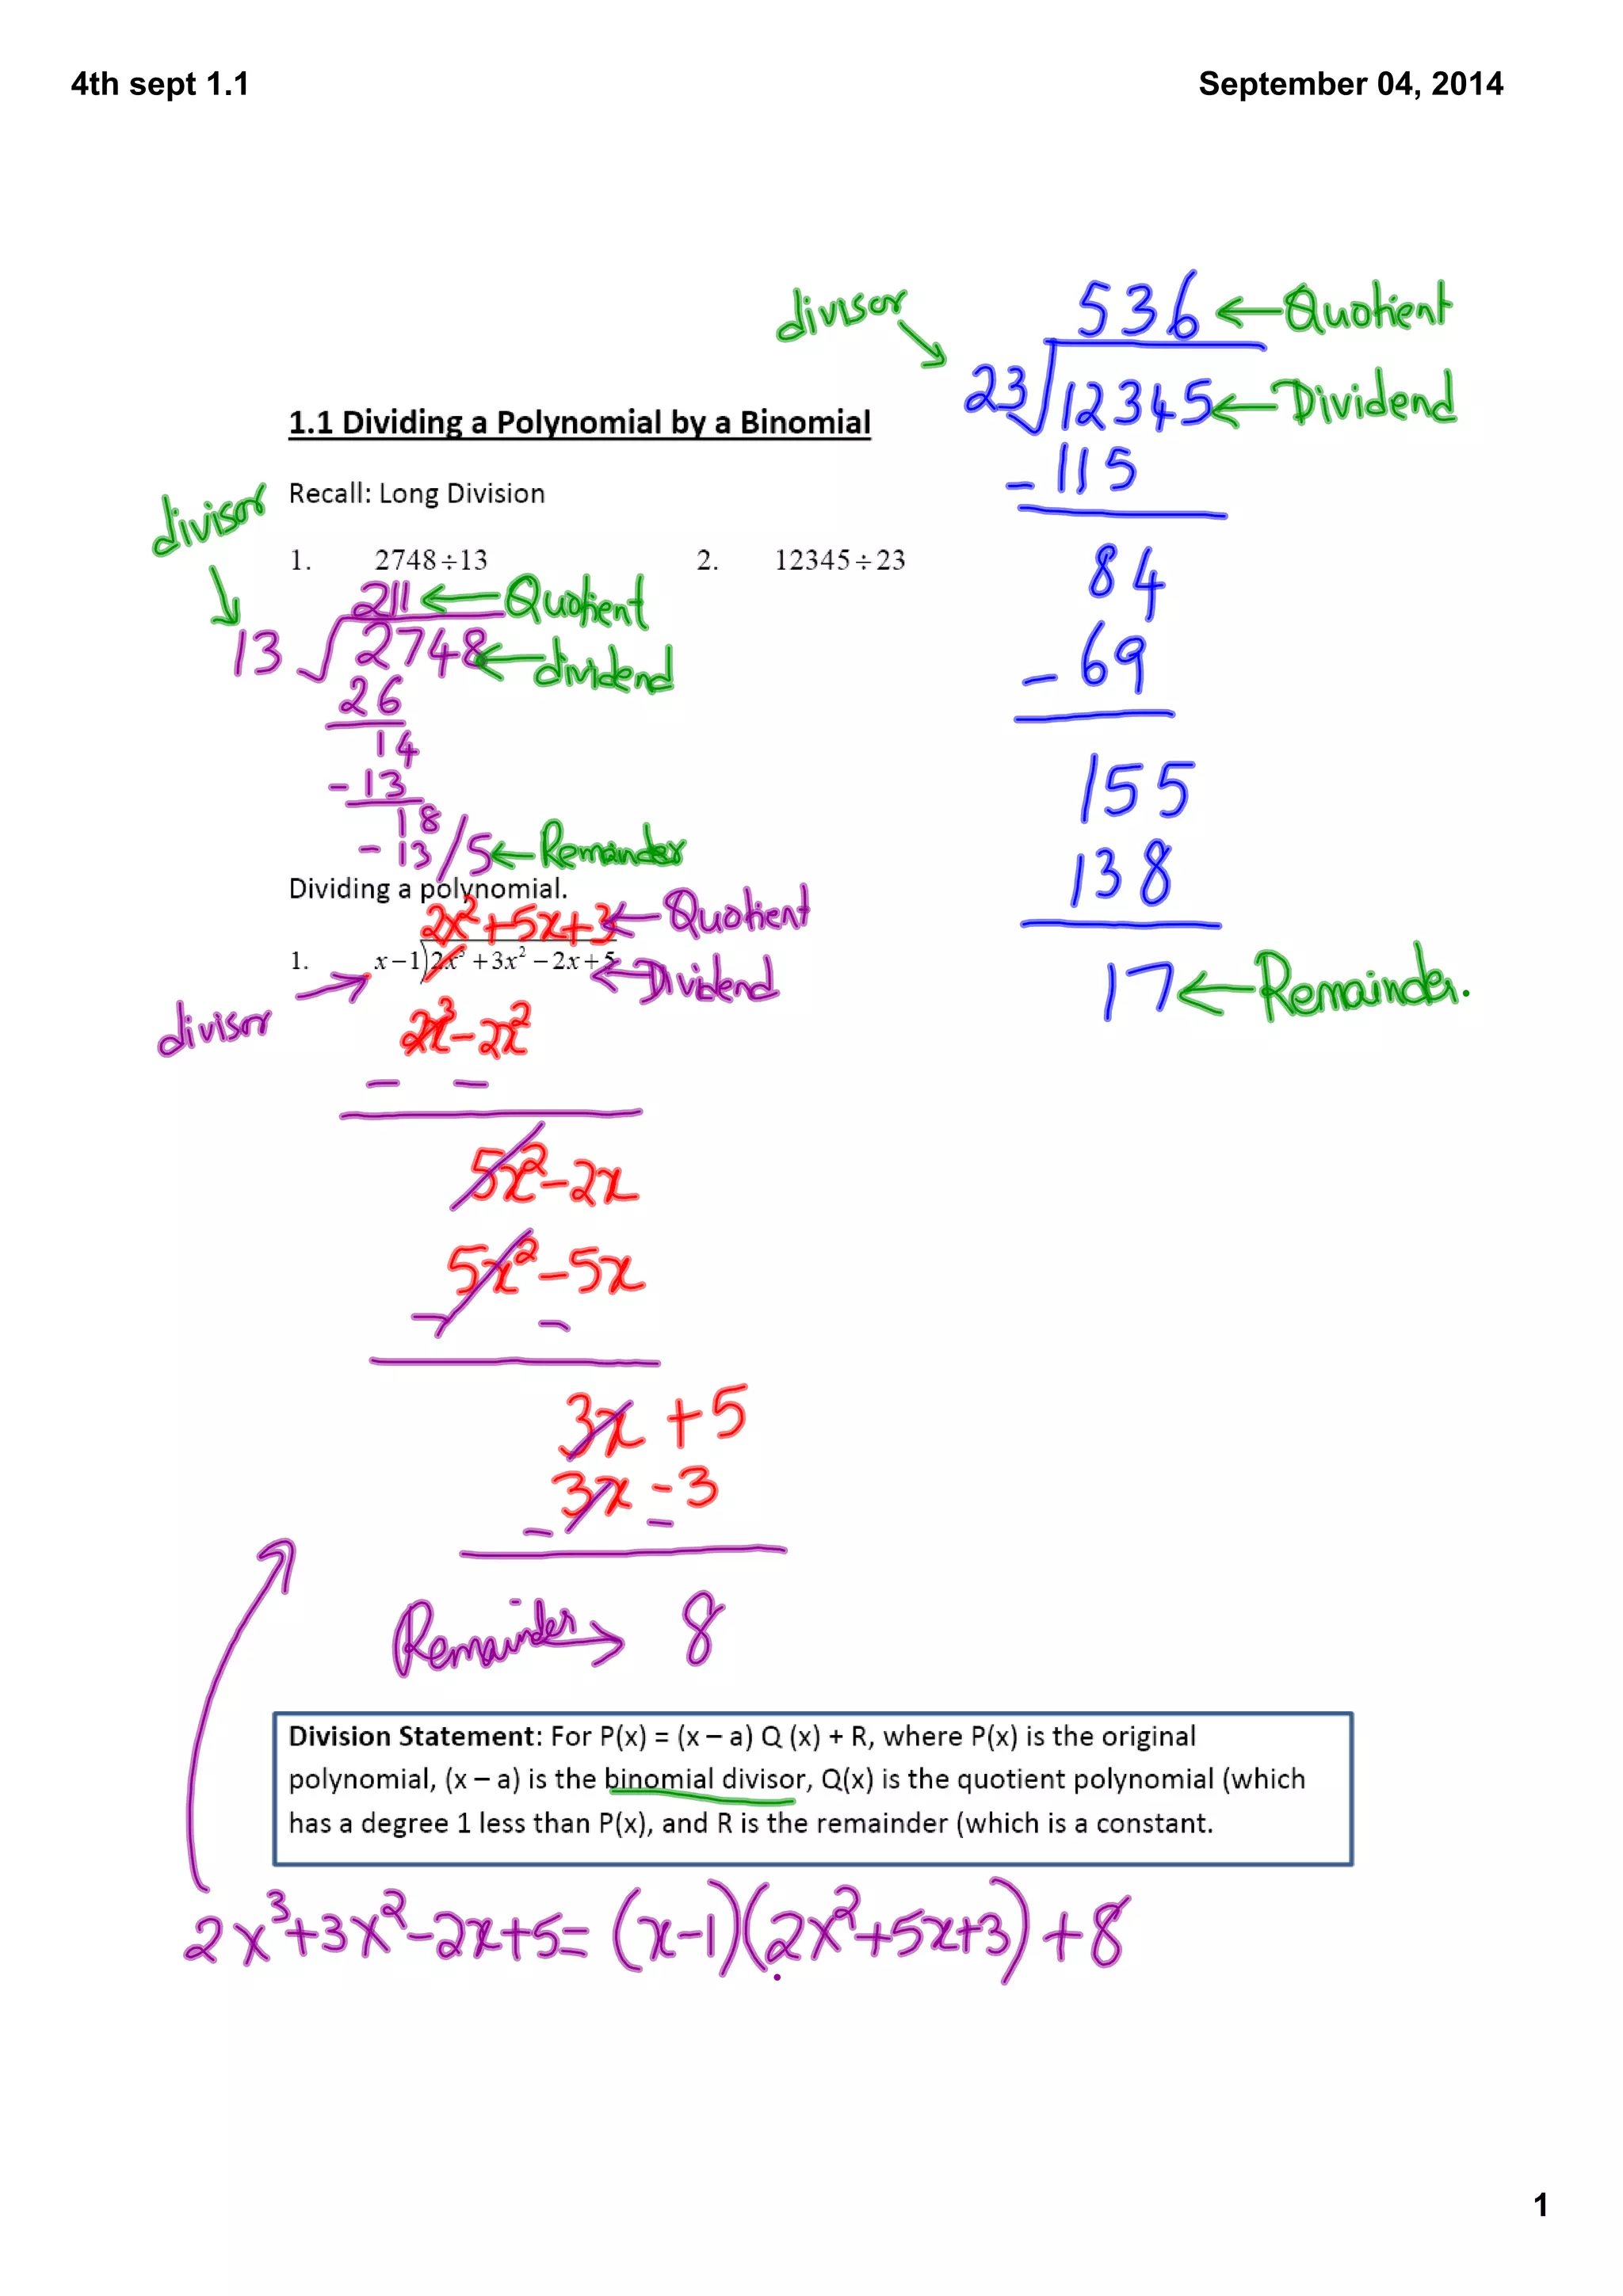 4th sept 1.1
September 04, 2014
divisor
536 ← Quotient
23 12345 ← Dividend
- 115
84
- 69
155
138
17 ← Remainder.
1.1 Dividing a Polynomial by a Binomial
Recall: Long Division
divisor
1. 2748÷13 2. 12345÷23
211 ← Quotient
13 2748 ← dividend
26
14
- 13
18
- 13 / 5 ← Remainder
Dividing a polynomial.
2x²+5x+3 ← Quotient
1. x−1)2x³+3x²−2x+5
← Dividend
divisor
2x³-2x²
- -
5x²-2x
5x²-5x
- -
3x+5
3x-3
- -
Remainder → 8
Division Statement: For P(x) = (x – a) Q (x) + R, where P(x) is the original
polynomial, (x – a) is the binomial divisor, Q(x) is the quotient polynomial (which
has a degree 1 less than P(x), and R is the remainder (which is a constant.
2x³+3x²-2x+5=(x-1)(2x²+5x+3)+8
1